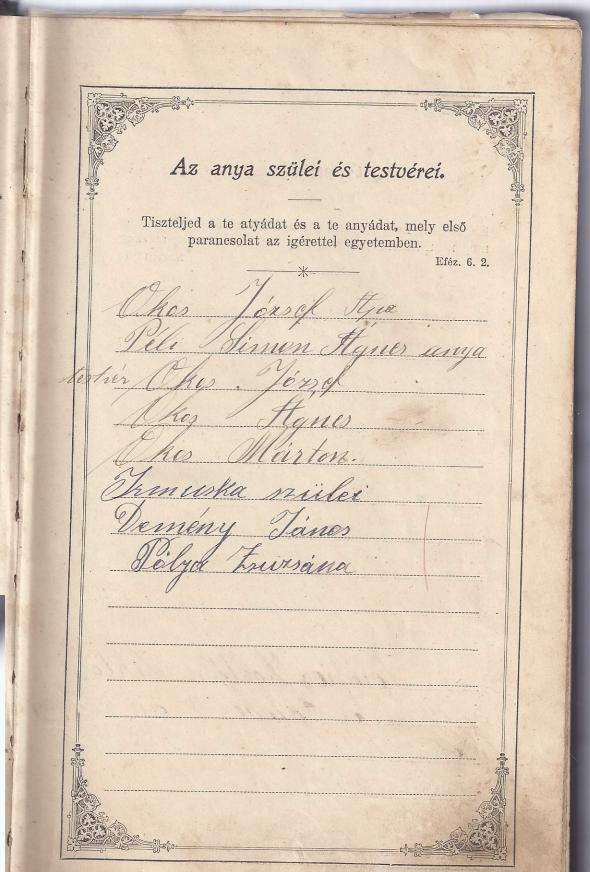 Az anya szülei és testvérei.
Tiszteljed a te atyádat és a te anyádat, mely első
parancsolat az igérettel egyetemben.
Eféz. 6. 2.
Okos József Apa
Péli Simon Ágnes anya
testvér Okos József
Okos Ágnes
Okos Márton.
Irmuska szülei
Demény János
Pólya Zsuzsána